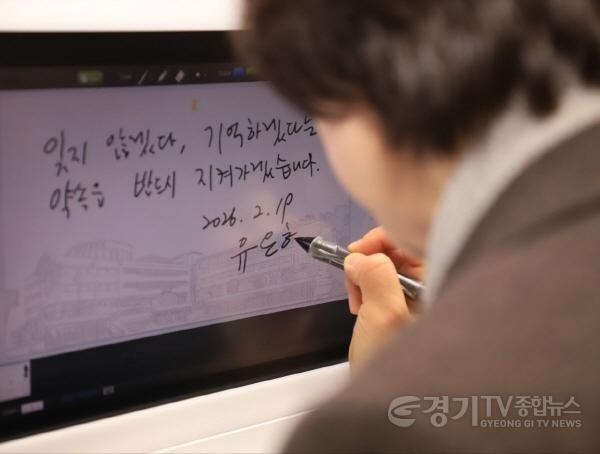 잊지 않겠다, 기억하겠다는
약속을 반드시 지켜가겠습니다.
2026. 2. 19
유은혜
경기TV종합뉴스
GYEONG GI TV NEWS